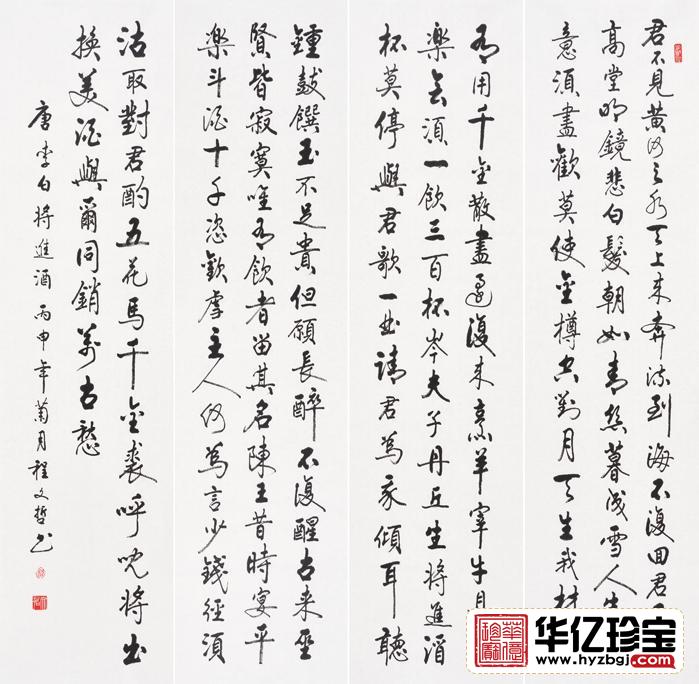 君不見黃河之水天上來奔流到海不復回君
高堂明鏡悲白髮朝如青絲暮成雪人生
意須盡歡莫使金樽空對月天生我材
有用千金散盡還復來烹羊宰牛且
樂會須一飲三百杯岑夫子丹丘生將進酒
杯莫停與君歌一曲請君為我傾耳聽
鍾鼓饌玉不足貴但願長醉不復醒古來聖
賢皆寂寞唯有飲者留其名陳王昔時宴平
樂斗酒十千恣歡虐主人何為言少錢徑須
沽取對君酌五花馬千金裘呼兒將出
換美酒與爾同銷萬古愁
唐李白將進酒 丙申年菊月程文哲书
华亿珍宝
www.hyzbgj.com